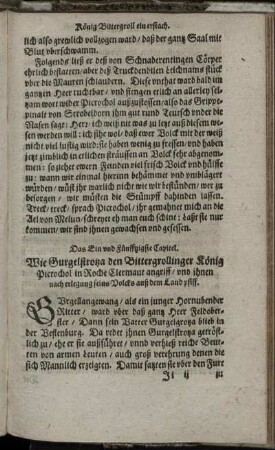 König Bittergroll ein erstach.
lich also grewlich vollzogen ward / daß der gantz Saal mit
Blut vberschwamm.
Folgends ließ er deß von Schnaderentingen Cörper
ehrlich bestatten / aber deß Truckdendilen Leichnams stück
vber die Mauren schlaudern. Dise vnthat ward bald im
gantzen Heer ruchtbar / vnd fiengen etlich an allerley seltzam
wort wider Pierochol außzustossen / also das Grippepinale
von Strobelborn ihm gut rund Teutsch vnder die
Nasen sagt: Herr / ich weiß nit was zu letzt auß disem wesen
werden will: ich sihe wol / daß ewer Volck mit der weiß
nicht viel lustig wird: sie haben wenig zu fressen / vnd haben
jetz zimblich in etlichen sträussen an Volck sehr abgenommen:
so ziehet ewern Feinden viel frisch Volck vnd hülffe
zu: wann wir einmal hierinn behämmer vnd vmblägert
würden / wüßt ihr warlich nicht wie wir bestünden / wer zu
besorgen / wir müsten die Stümpff dahinden lassen.
Treck / treck / sprach Pierochol / ihr gemahnet mich an die
Ael von Melun / schreyet eh man euch schint: laßt sie nur
kommen / wir sind ihnen gewachsen vnd gesessen.
Das Ein vnd Fünfftzigste Capitel.
Wie Gurgelstroza den Bittergrollinger König
Pierochol in Roche Clermaut angriff / vnd ihnen
nach erlegung seins Volcks auß dem Land pfiff.
GVrgellangewang / als ein junger Hornubender
Ritter / ward vber daß gantz Heer Feldoberster /
Dann sein Vatter Gurgelgroza blieb in
der Vestenburg. Da redet ihnen Gurgelstroza getröstlich
zu / ehe er sie außführet / vnnd verhieß reiche Beuten
von armen Leuten / auch groß verehrung denen die
sich Mannlich erzeigten. Damit satzten sie vber den Furt
Ji ij zu